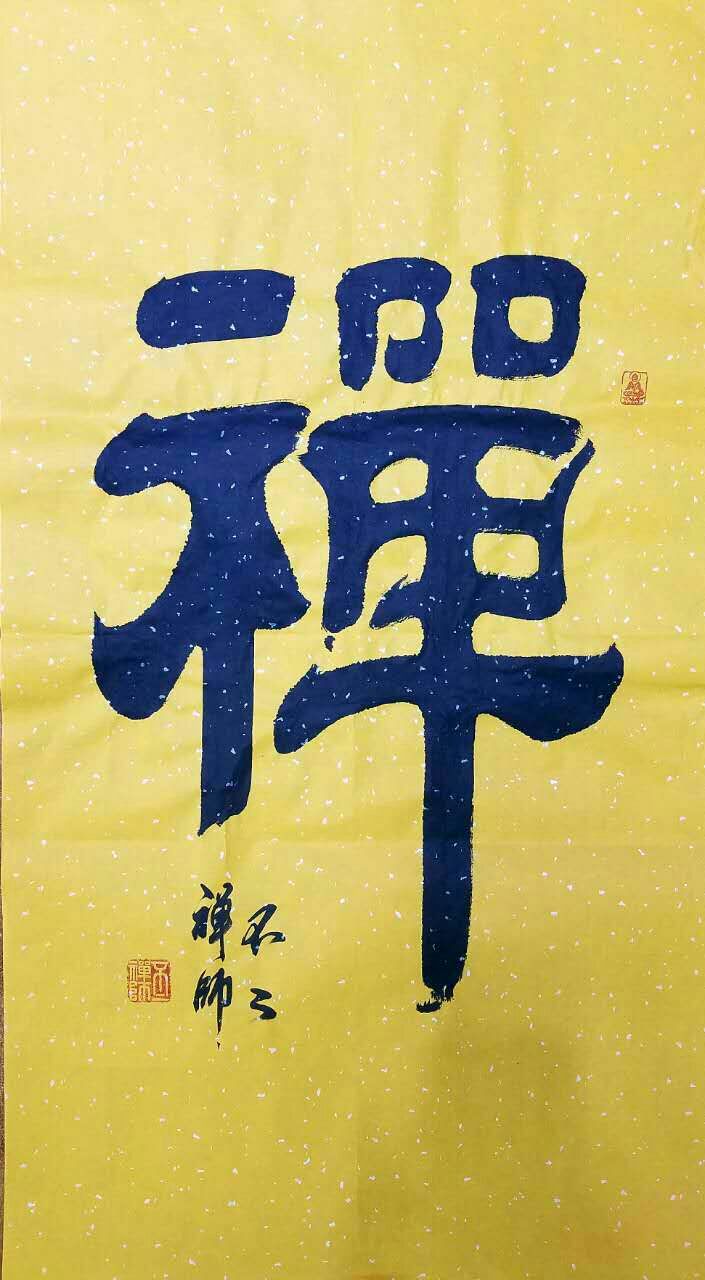 禪
不二
禅師
不二禪師